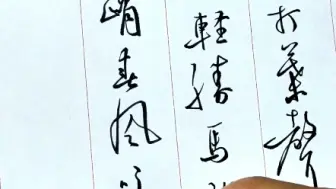 打葉聲
輕勝馬
峭春風